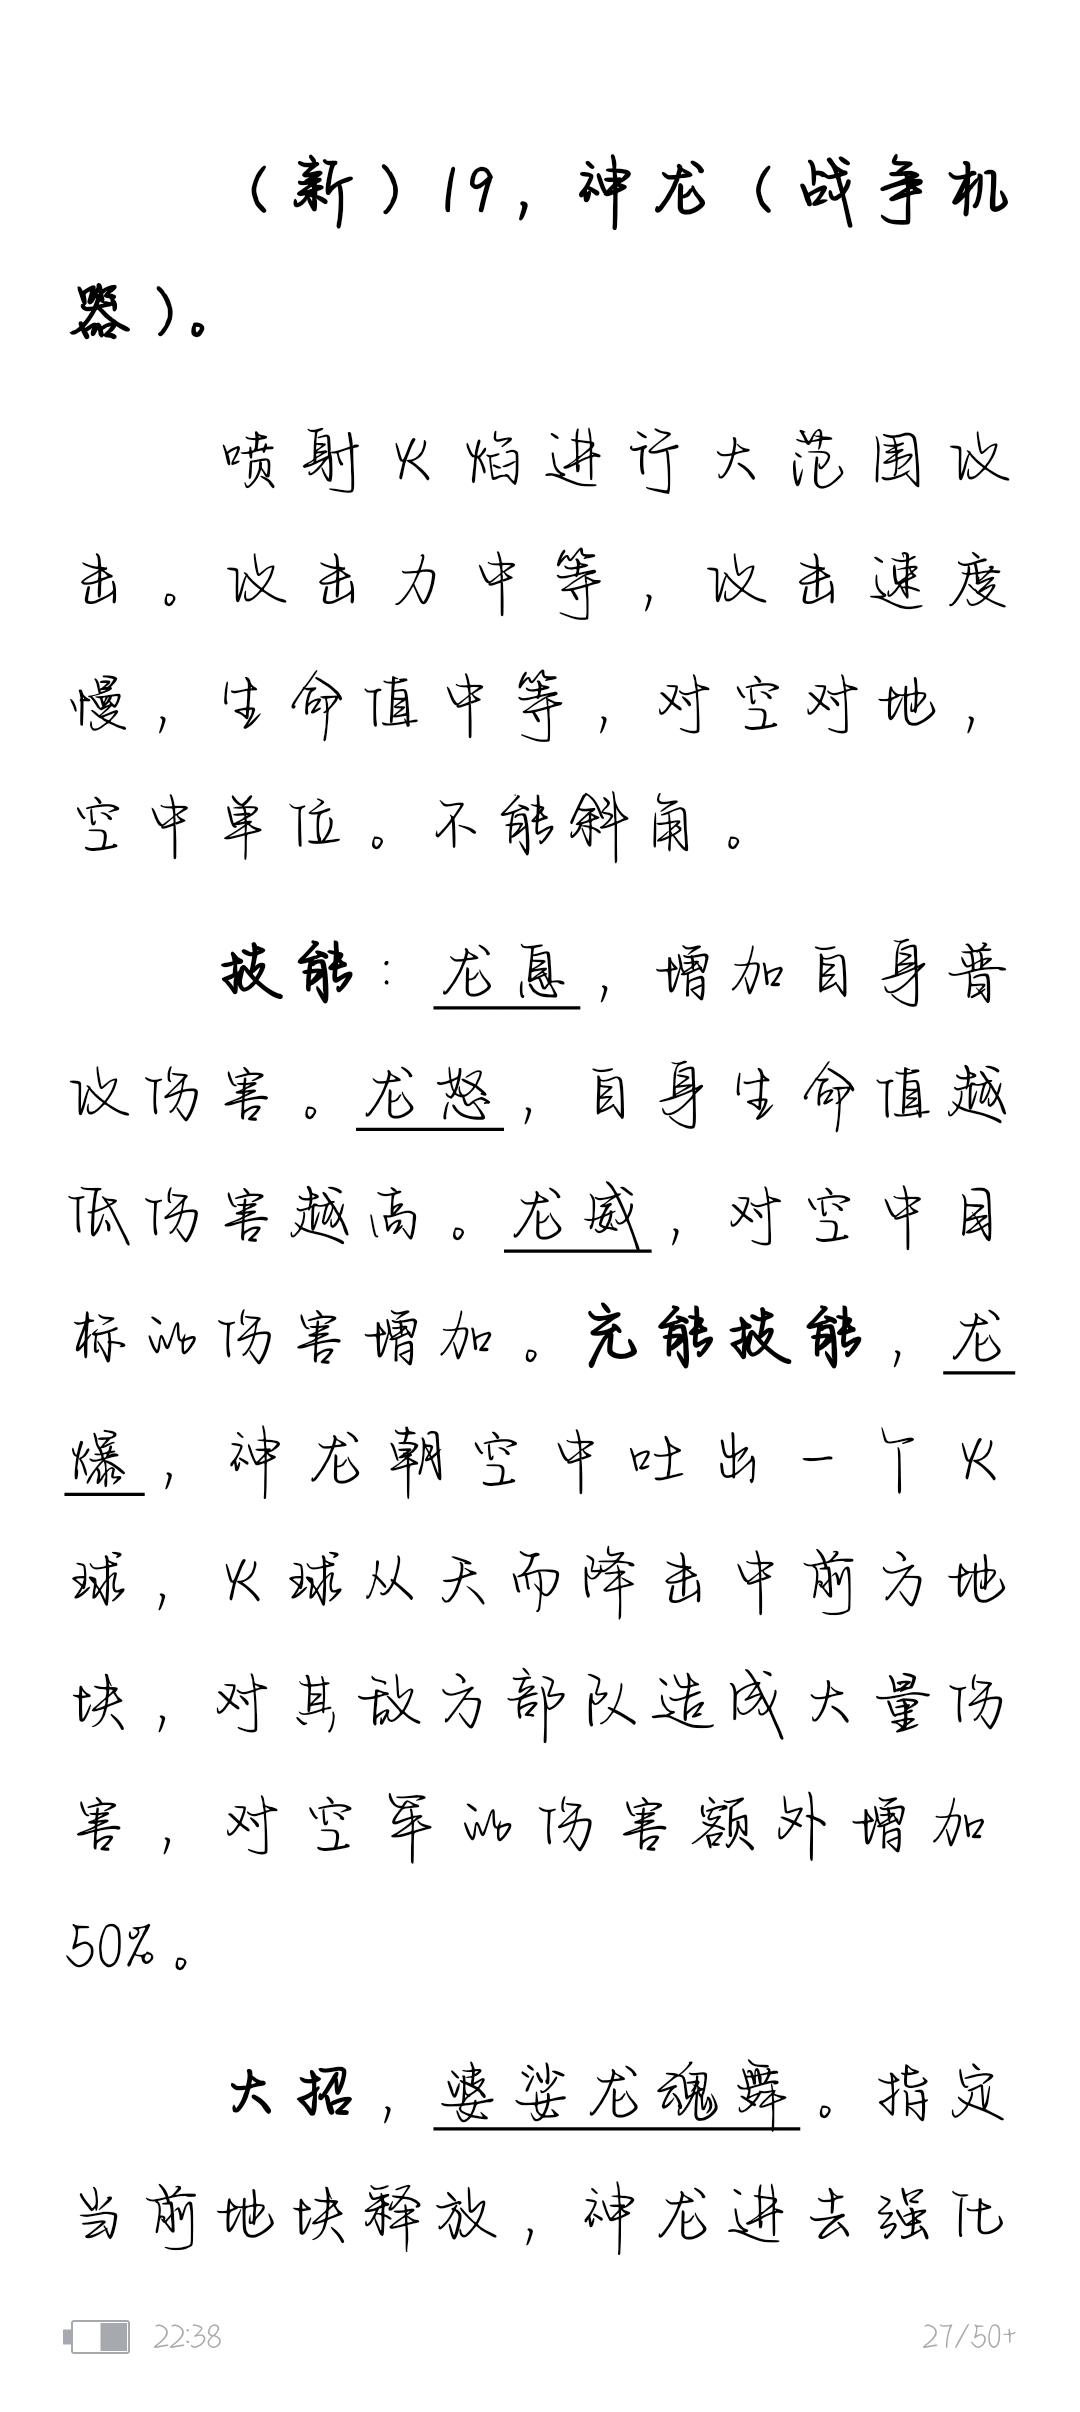 （新）19，神龙（战争机
器）。
喷射火焰进行大范围攻
击。攻击力中等，攻击速度
慢，生命值中等，对空对地，
空中单位。不能斜角。
技能：龙息，增加自身普
攻伤害。龙怒，自身生命值越
低伤害越高。龙威，对空中目
标的伤害增加。充能技能，龙
爆，神龙朝空中吐出一个火
球，火球从天而降击中前方地
块，对其敌方部队造成大量伤
害，对空军的伤害额外增加
50%。
大招，婆娑龙魂舞。指定
当前地块释放，神龙进去强化
22:38
27/50+